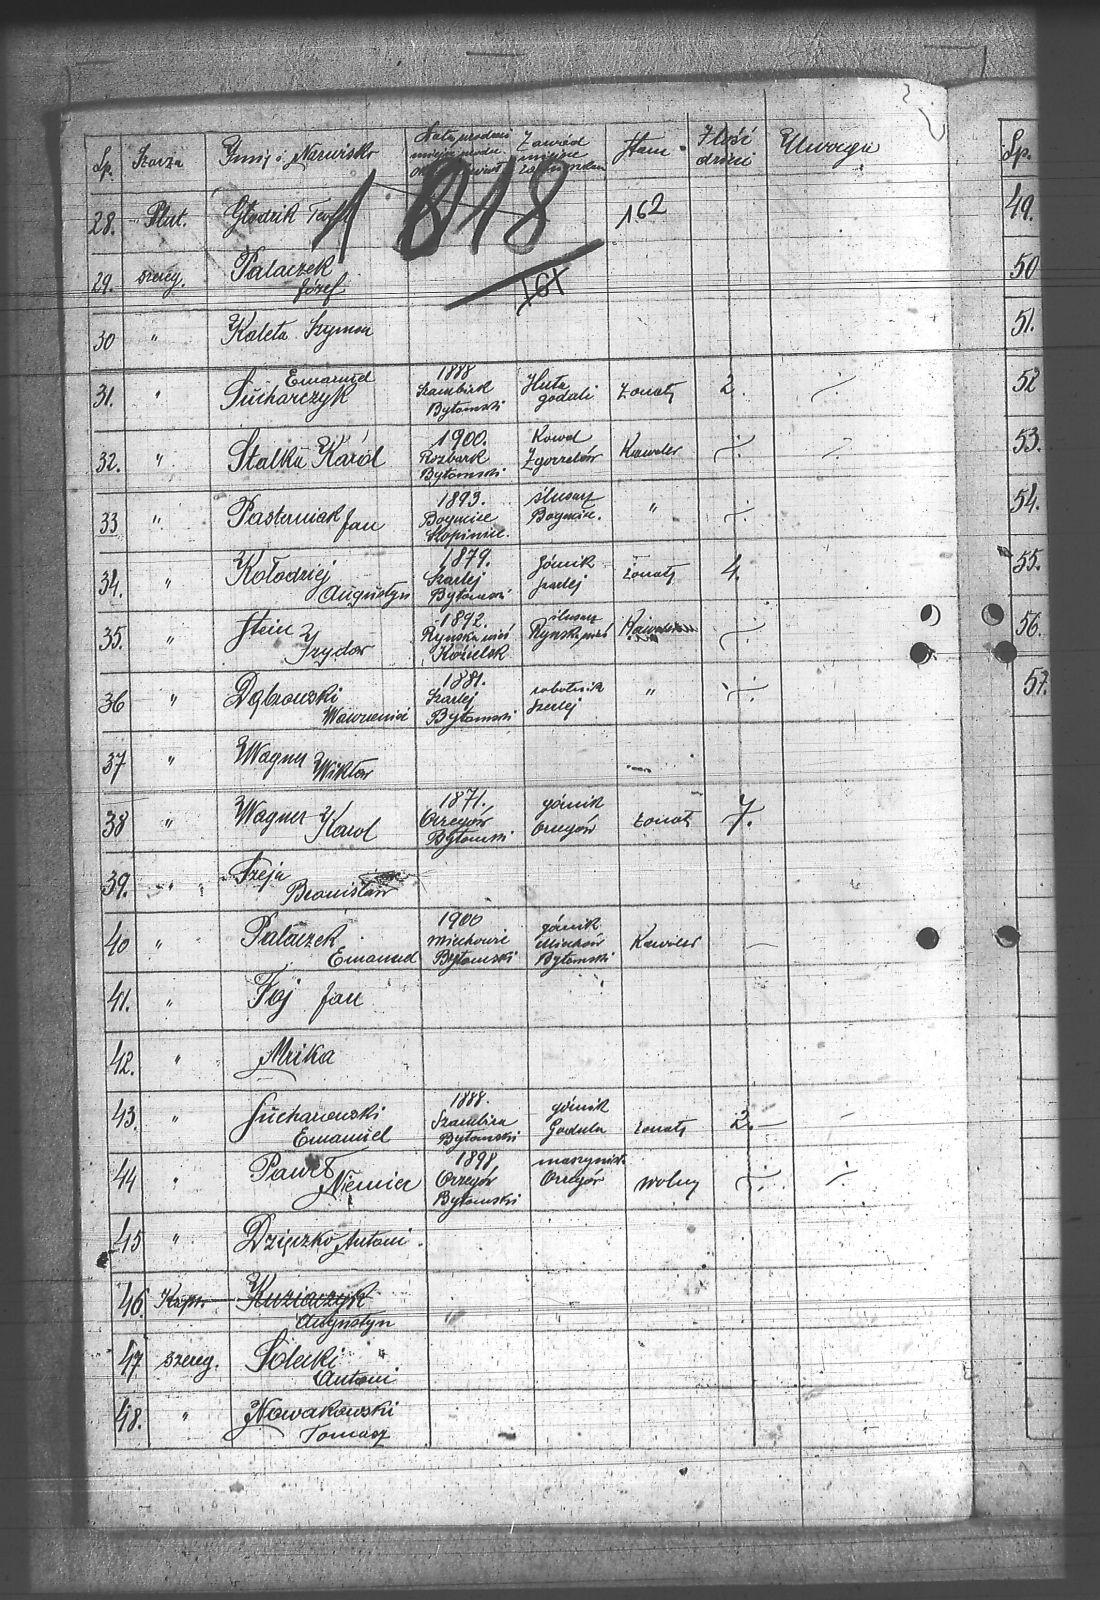 Lp. Szarża Imię i Nazwisko Data urodzeń Zawód miejsce Stan Ilość dzieci Uwaga Lp.
1 818
162
161
28. Plut. Głodzik Teofil 49.
29. szereg. Palaczek Józef 50
30 " Kaleta Szymon 51.
31. " Sucharczyk Emanuel 1888 Szombierk Bytomski Huta godali Żonaty 2. ·/· 52
32. " Stalka Karól 1900. Rozbark Bytomski Kowal Zgorzelów Kawaler ·/· ·/· 53.
33 " Pasterniak Jan 1893. Bogucice ślusarz Bogucice. " ·/· 54.
34. " Kołodziej Augustyn 1879. Szarlej Bytomski górnik szarlej żonaty 4. 55.
35. " Stein Izydor 1892. ślusarz Kawaler ·/· 56.
36 " Dąbrowski Wawrzeniec 1881. Szarlej Bytomski robotnik Szarlej " ·/· 57.
37 " Wagner Wiktor
38 " Wagner Karol 1871. Orzegów Bytomski górnik Orzegów żonaty 7.
39. " Szeja Bronisław
40 " Palaczek Emanuel 1900 Miechowic Bytomski górnik Miechów Bytomski Kawaler —
41. " Faj Jan
42. " Mrika
43. " Suchanowski Emanuel 1888. Szombira Bytomski górnik Godula żonaty 2. —
44 " Paweł Niemiec 1898 Orzegów Bytomski maszynist. Orzegów wolny ·/· ·/·
45 " Dzięczko Antoni
46. Kapr. Kuziaczyk Augustyn
47 szereg. Solecki Antoni
48. " Nowakowski Tomasz